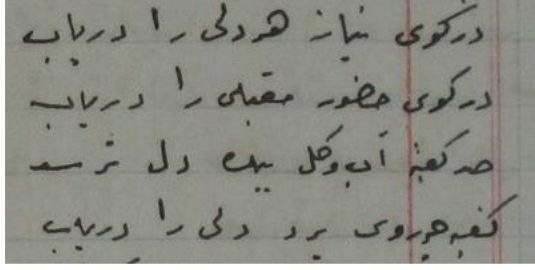 درکوی نیاز هر دلی را دریاب
درکوی حضور مقبلی را دریاب
صد کعبهٔ آب و گل بیک دل نرسد
کعبه چه روی برو دلی را دریاب